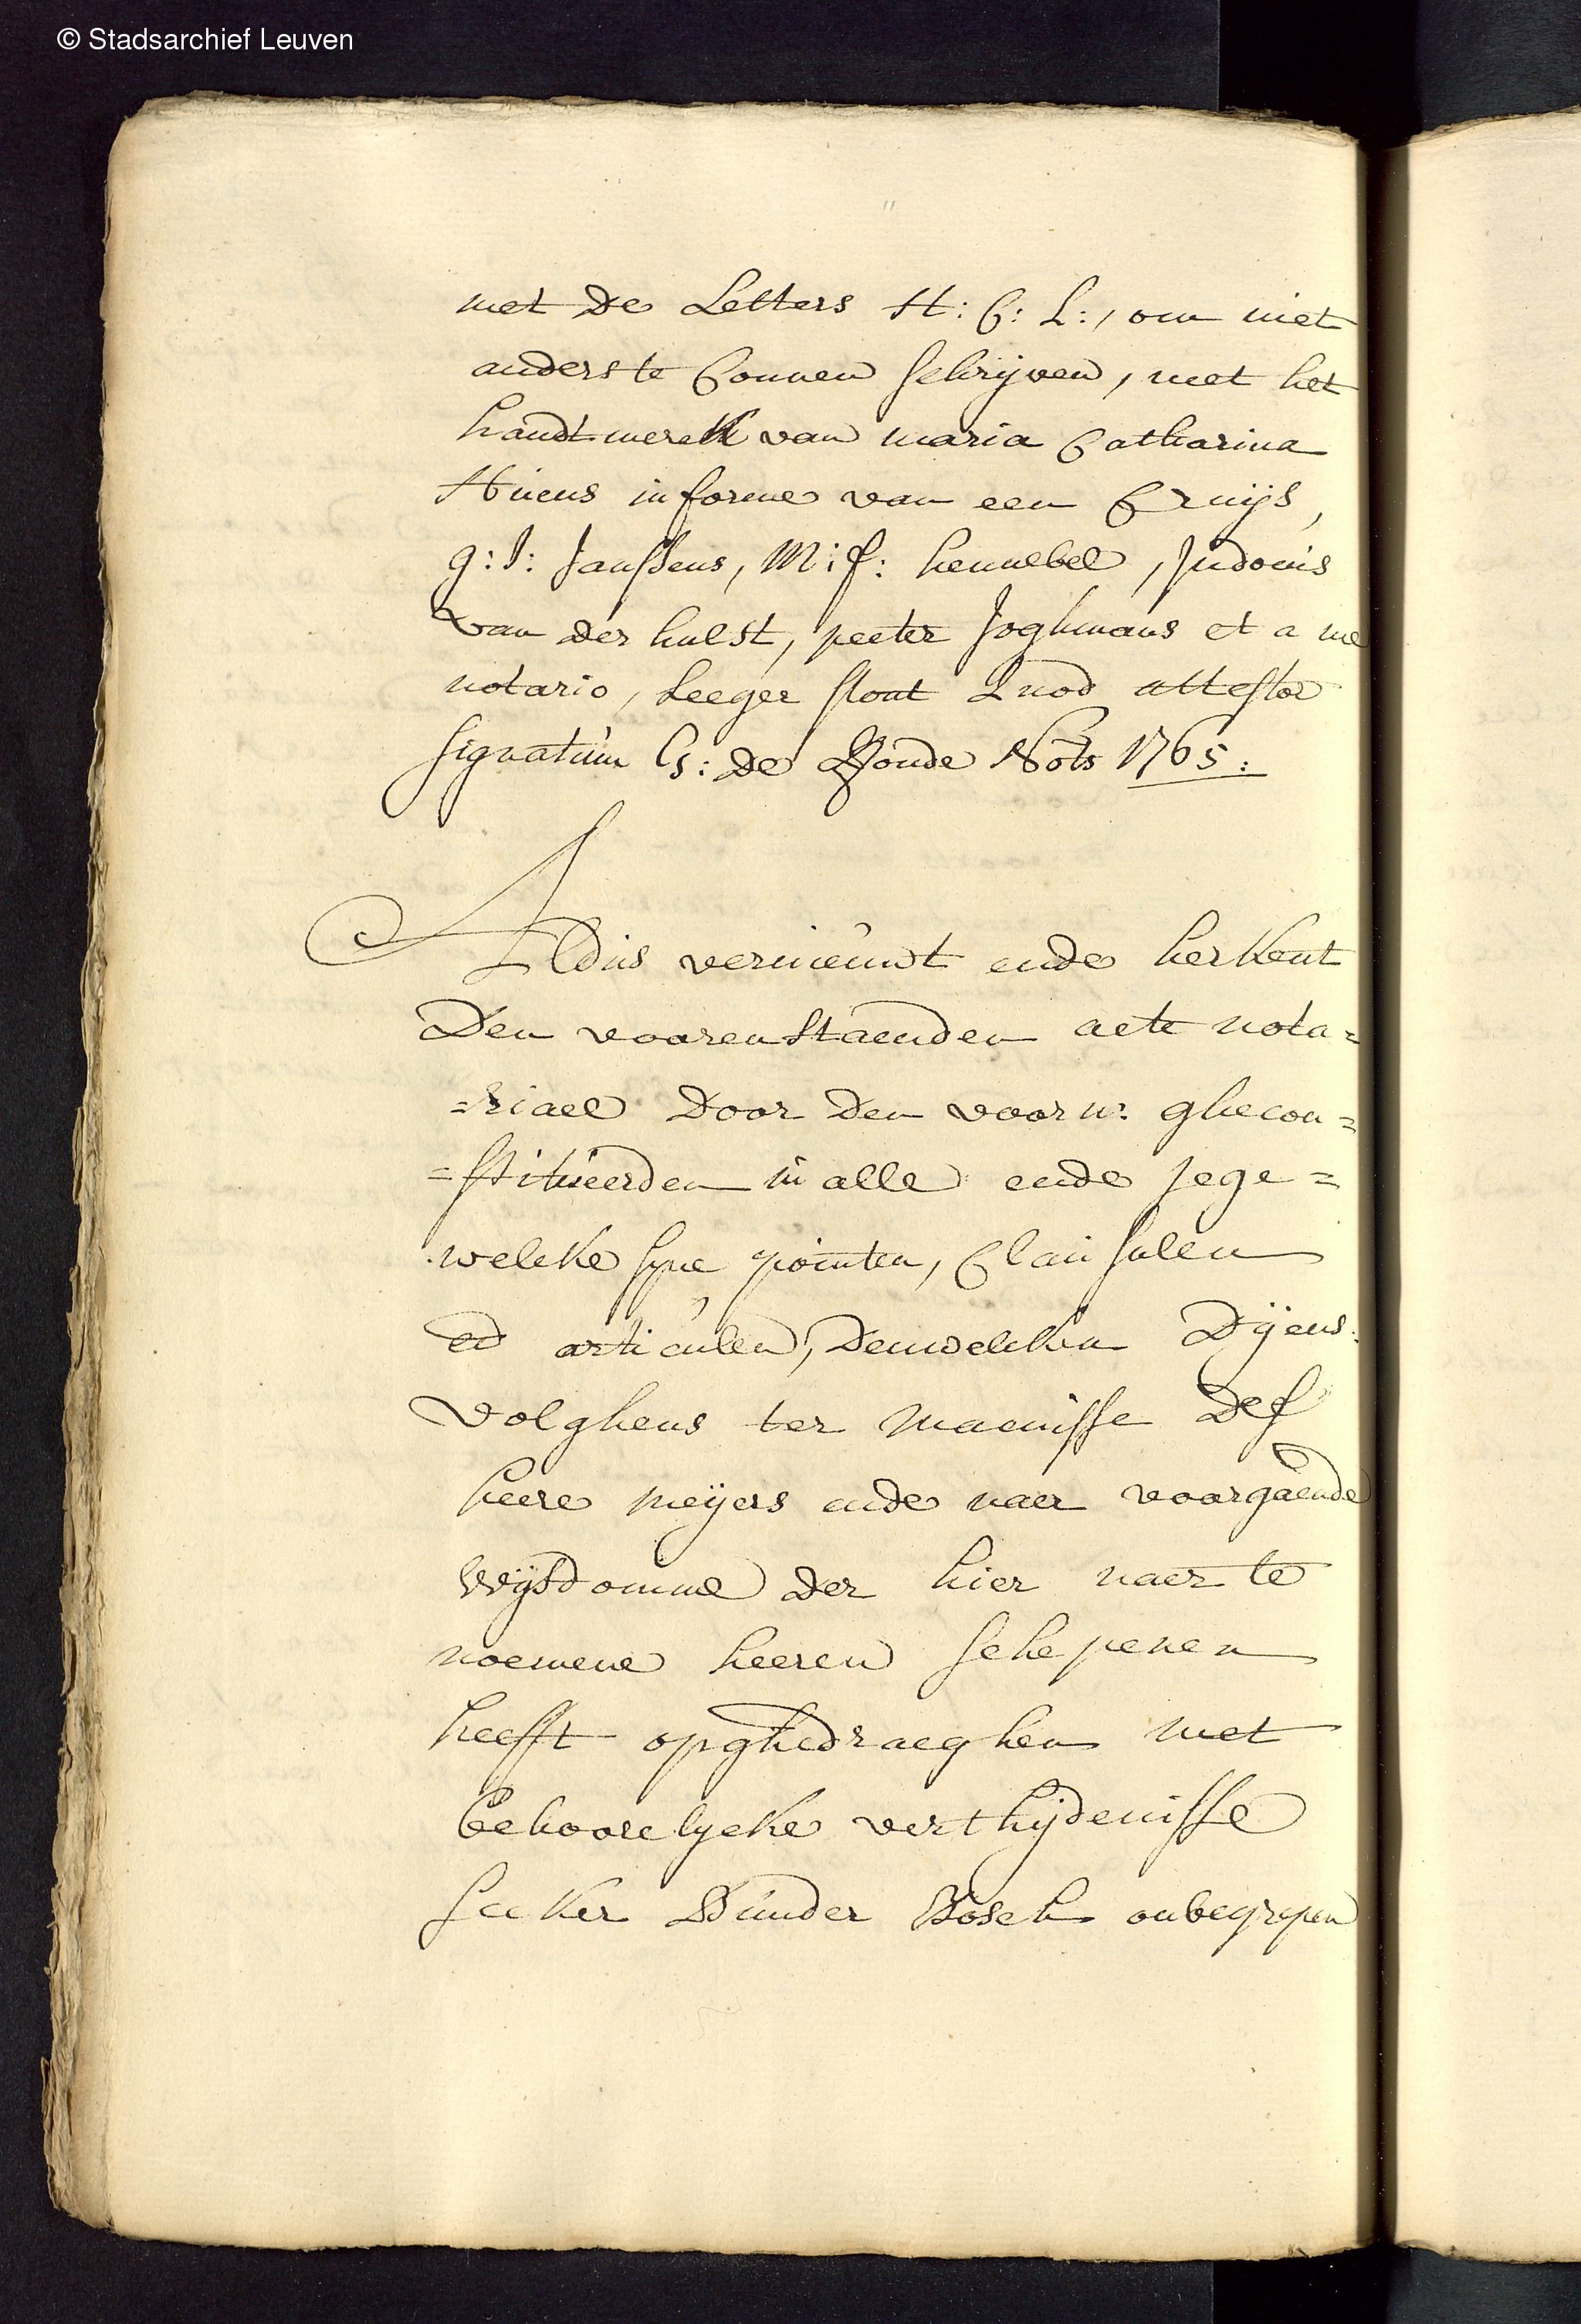 © Stadsarchief Leuven
met de Letters H: C: L:, om niet
anders te Connen schrijven, met het
handtmerck van maria Catharina
Huens in forme van een Cruijs,
g: J: Janssens, M: f: hennebel, Judocus
van der hulst, peeter Joghmans et a me
notario, leeger stont Quod attestor
signatum G: de Ronde Nots 1765:
Aldus vernieuwt ende herkent
Den voorenstaenden acte nota=
=riael door den voorn: ghecon=
=stitueerden in alle ende jege=
welcke syne pointen, Clausulen
ed articulen, denwelcken Dijens
volghens ter maenisse des
heere meijers ende naer voorgaende
wijsdomme der hier naer te
noemene heeren schepenen
heefft opghedraeghen met
behoorelycke verthijdenisse
seeker Bunder Bosch onbegrepen